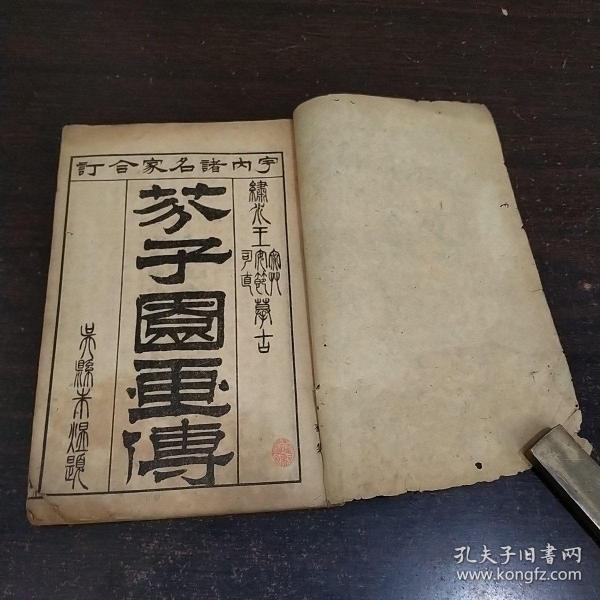 宇內諸名家合訂
繡水王宓艸安節司直摹古
芥子園畫傳
吳縣朱煜題
孔夫子旧書网
www.kongfz.com